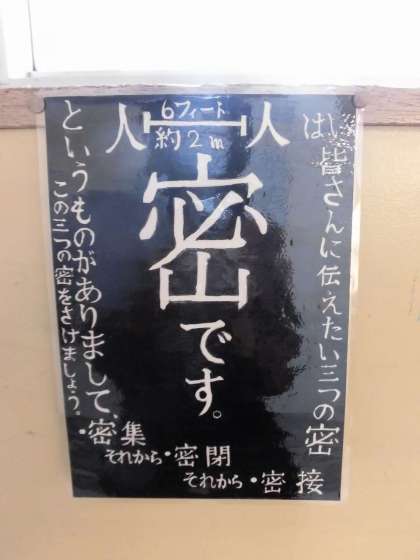 人 6フィート 約2m 人
密です。
は、皆さんに伝えたい三つの密
というものがありまして、
この三つの密をさけましょう。
・密集
それから・密閉
それから・密接